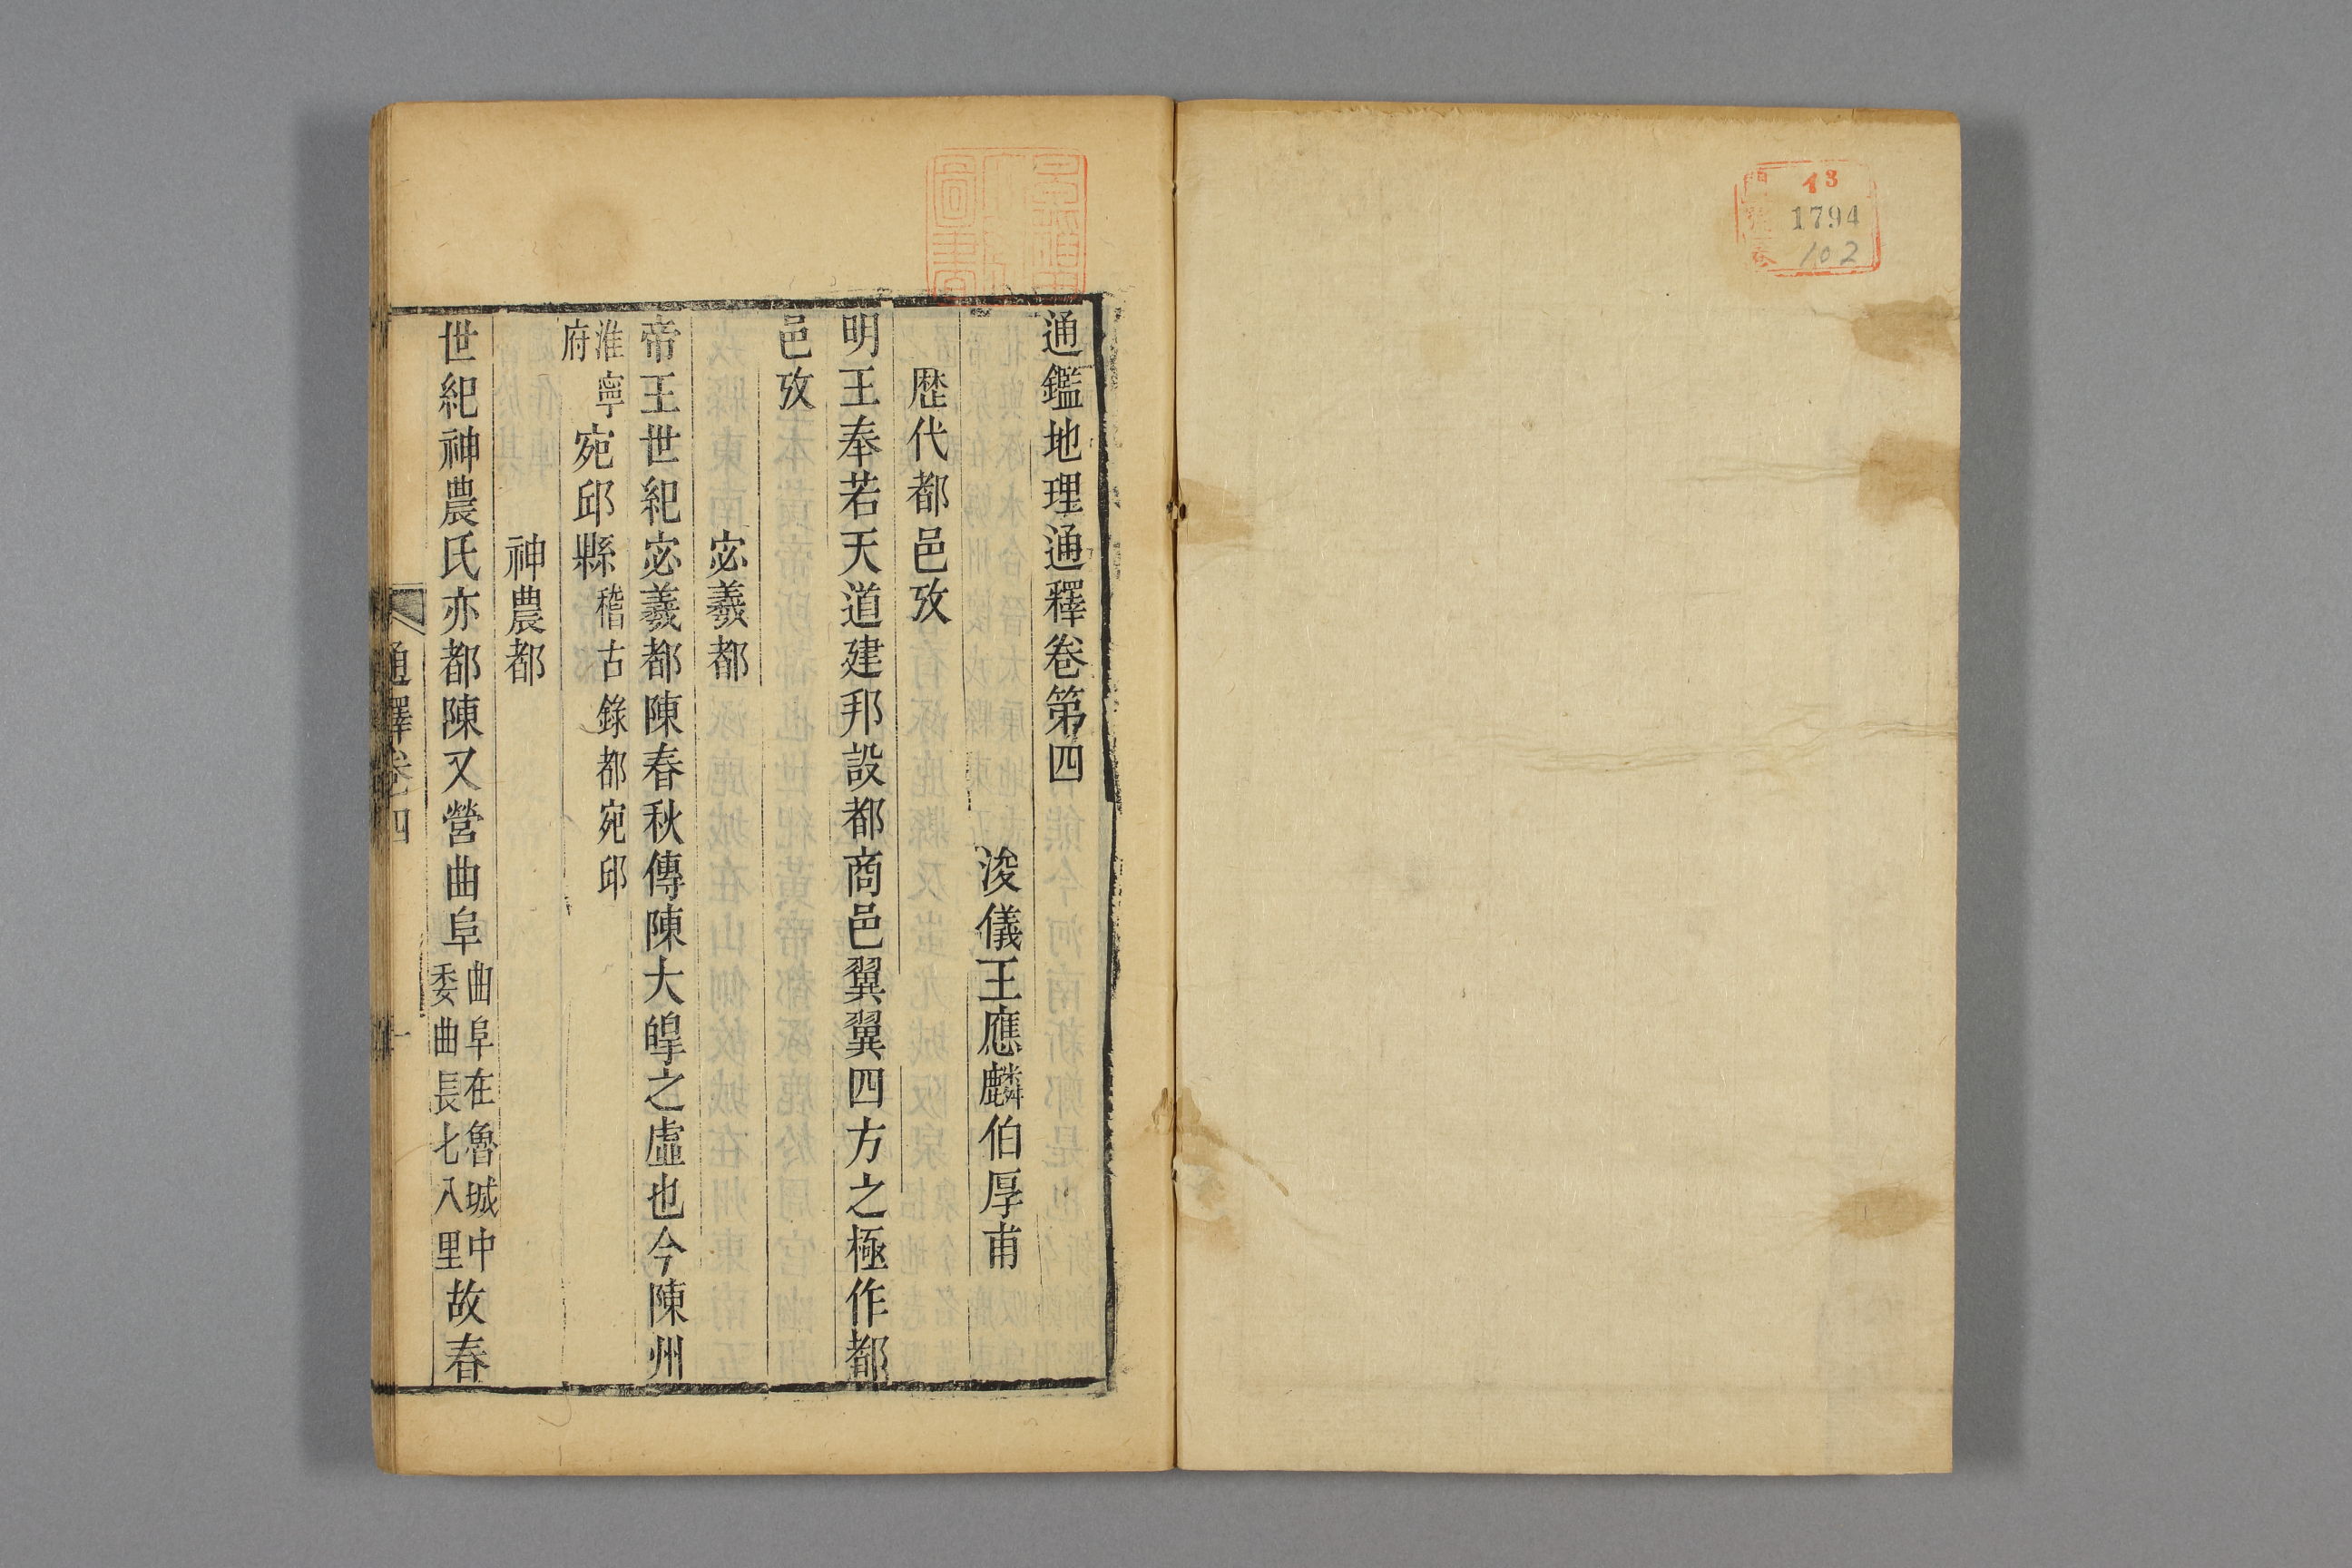 13
1794
102
通鑑地理通釋卷第四
浚儀王應麟伯厚甫
歷代都邑攷
明王奉若天道建邦設都商邑翼翼四方之極作都
邑攷
宓羲都
帝王世紀宓羲都陳春秋傳陳大皥之虛也今陳州
淮寧府宛邱縣稽古錄都宛邱
神農都
世紀神農氏亦都陳又營曲阜曲阜在魯城中委曲長七八里故春
通釋卷四
一